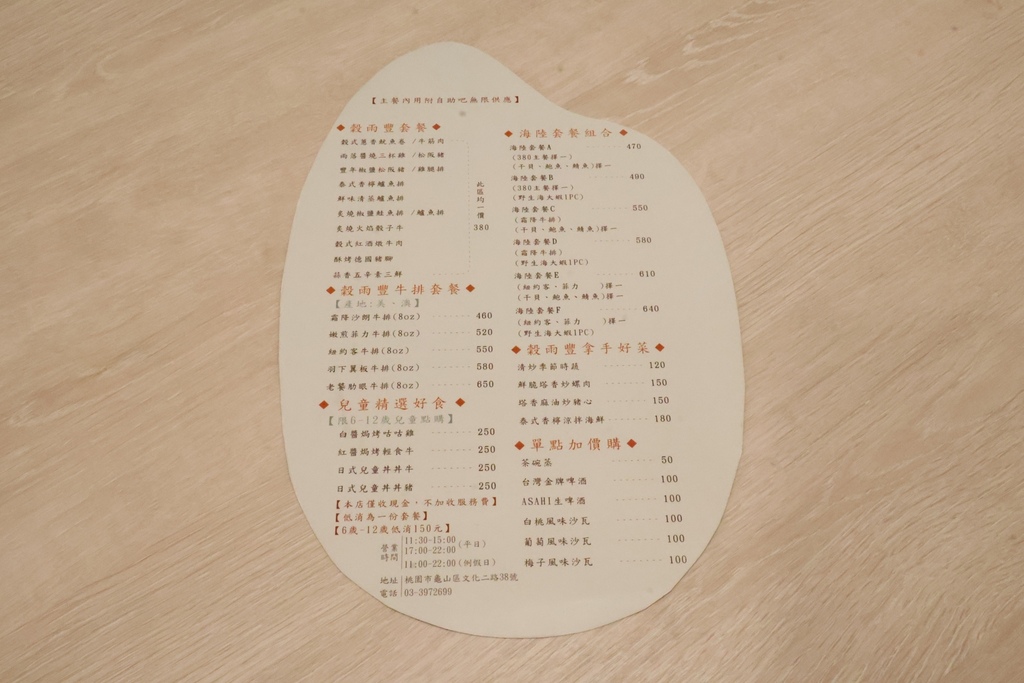 【主餐內用附自助吧無限供應】
◆穀雨豐套餐◆
穀式蔥香魷魚卷 /牛筋肉
雨落醬燒三杯雞 /松阪豬
豐年椒鹽松阪豬 /雞腿排
泰式香檸鱸魚排
鮮味清蒸鱸魚排
炙燒椒鹽鮭魚排 /鱸魚排
炙燒火焰骰子牛
穀式紅酒燉牛肉
酥烤德國豬腳
蒜香五辛素三鮮
此區均一價
380
◆穀雨豐牛排套餐◆
【產地:美、澳】
霜降沙朗牛排(8oz) 460
嫩煎菲力牛排(8oz) 520
紐約客牛排(8oz) 550
羽下翼板牛排(8oz) 580
老饕肋眼牛排(8oz) 650
◆兒童精選好食◆
【限6-12歲兒童點購】
白醬焗烤咕咕雞 250
紅醬焗烤輕食牛 250
日式兒童丼丼牛 250
日式兒童丼丼豬 250
【本店僅收現金，不加收服務費】
【低消為一份套餐】
【6歲-12歲低消150元】
營業時間
11:30-15:00
17:00-22:00
(平日)
11:00-22:00(例假日)
地址 桃園市龜山區文化二路38號
電話 03-3972699
◆海陸套餐組合◆
海陸套餐A 470
(380主餐擇一)
(干貝、鮑魚、鯖魚)擇一
海陸套餐B 490
(380主餐擇一)
(野生海大蝦1PC)
海陸套餐C 550
(霜降牛排)
(干貝、鮑魚、鯖魚)擇一
海陸套餐D 580
(霜降牛排)
(野生海大蝦1PC)
海陸套餐E 610
(紐約客、菲力 )擇一
(干貝、鮑魚、鯖魚)擇一
海陸套餐F 640
(紐約客、菲力 )擇一
(野生海大蝦1PC)
◆穀雨豐拿手好菜◆
清炒季節時蔬 120
鮮脆塔香炒螺肉 150
塔香麻油炒豬心 150
泰式香檸涼拌海鮮 180
◆單點加價購◆
茶碗蒸 50
台灣金牌啤酒 100
ASAHI生啤酒 100
白桃風味沙瓦 100
葡萄風味沙瓦 100
梅子風味沙瓦 100